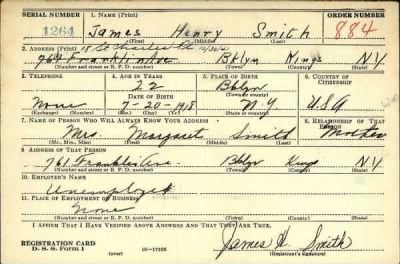 SERIAL NUMBER 1. NAME (Print) ORDER NUMBER
1264 James Henry Smith 884
(First) (Middle) (Last)
2. ADDRESS (Print) 18 St Charles
764 Franklin Ave Bklyn Kings NY
(Number and street or R. F. D. number) (Town) (County) (State)
3. TELEPHONE 4. AGE IN YEARS 5. PLACE OF BIRTH 6. COUNTRY OF CITIZENSHIP
22 Bklyn
None DATE OF BIRTH (Town or county)
7-20-1918 N.Y. USA
(Exchange) (Number) (Mo.) (Day) (Yr.) (State or country)
7. NAME OF PERSON WHO WILL ALWAYS KNOW YOUR ADDRESS 8. RELATIONSHIP OF THAT PERSON
Mrs. Margaret Smith Mother
(Mr., Mrs., Miss) (First) (Middle) (Last)
9. ADDRESS OF THAT PERSON
761 Franklin Ave. Bklyn Kings NY
(Number and street or R. F. D. number) (Town) (County) (State)
10. EMPLOYER'S NAME
Unemployed
11. PLACE OF EMPLOYMENT OR BUSINESS
None
(Number and street or R. F. D. number) (Town) (County) (State)
I AFFIRM THAT I HAVE VERIFIED ABOVE ANSWERS AND THAT THEY ARE TRUE.
REGISTRATION CARD
D. S. S. FORM 1 (over) 16-17105
James H. Smith
(Registrant's signature)